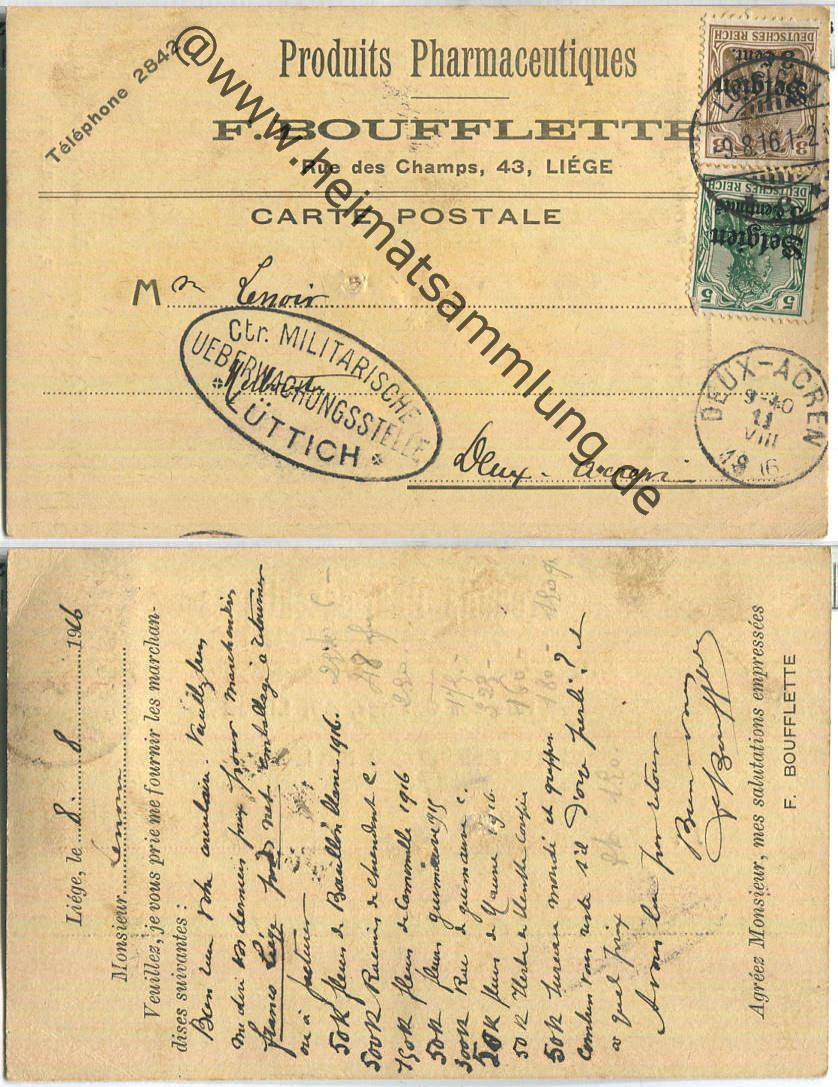 Téléphone 2842
Produits Pharmaceutiques
F. BOUFFLETTE
Rue des Champs, 43, LIÉGE
CARTE POSTALE
DEUTSCHES REICH
Belgien
3 Cent.
3 3
9.8.16.1-2
DEUTSCHES REICH
Belgien
5 Centimes
5 5
M Lenoir
Ctr. MILITARISCHE
UEBERWACHUNGSSTELLE
LÜTTICH
Deux-Acren
DEUX-ACREN
9-10
11
VIII
1916
@www.heimatsammlung.de
Liége, le 8 8 1916
Monsieur Lenoir
Veuillez, je vous prie me fournir les marchan-
dises suivantes :
Bien reçu votre circulaire. Veuillez bien
me dire vos derniers prix pour marchandises
franco Liége net emballage à retourner
ou à facturer
50K fleurs de Bouillon blanc 1916.
500K Racines de chiendent C.
150K fleurs de camomille 1916
50K fleurs guimauve 1915
300K Rac de guimauve C.
50K fleurs de 1916
50K Herbe de Menthe
50K sureau mondé et grappes
combien vous reste-t-il d'orge perlé ? et
à quel prix
A vous lire par retour
Bien à vous
F Boufflette
Agréez Monsieur, mes salutations empressées
F. BOUFFLETTE